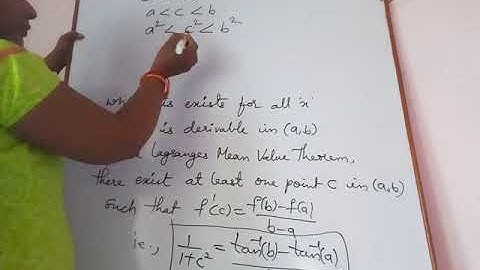 a < c < b
a² < c² < b²
is exists for all 'x'
is derivable in (a,b)
Lagranges Mean Value Theorem,
there exist at least one point C in (a,b)
Such that f'(c) = f(b)-f(a) / b-a
i.e., 1/1+c² = tan⁻¹(b) - tan⁻¹(a)